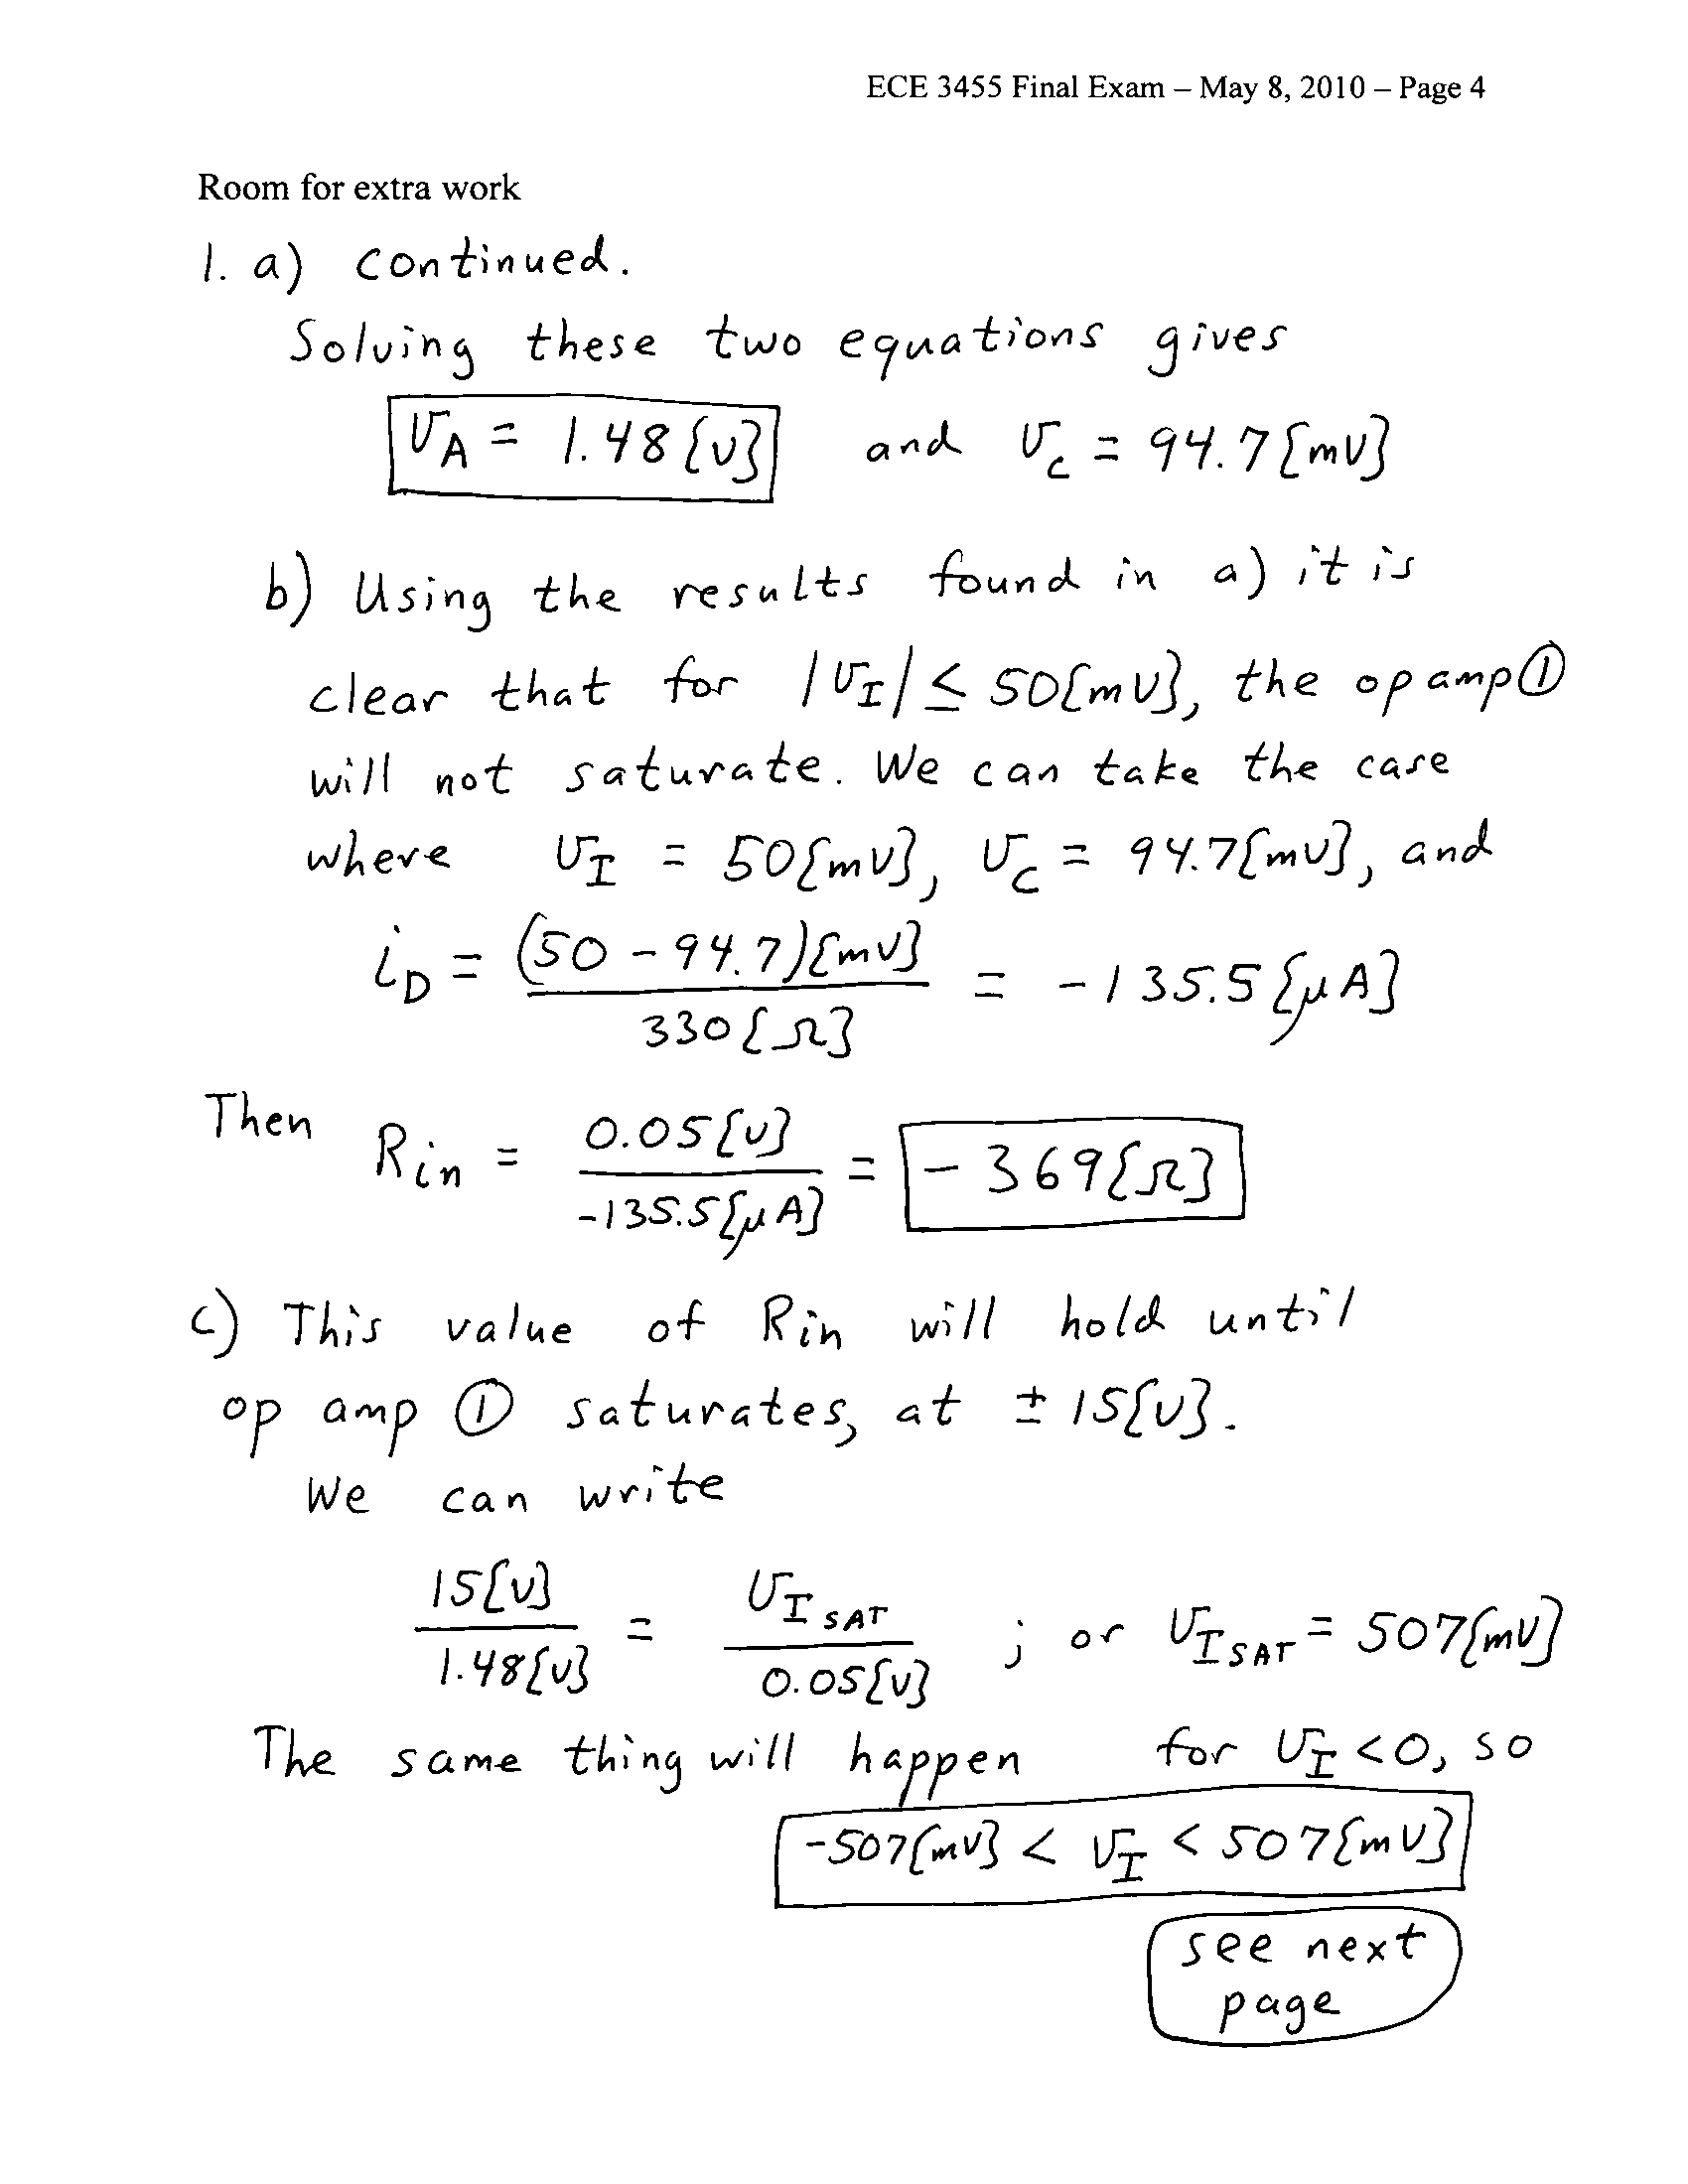 ECE 3455 Final Exam – May 8, 2010 – Page 4
Room for extra work
1. a) continued.
Solving these two equations gives
v_A = 1.48{V} and v_C = 94.7{mV}
b) Using the results found in a) it is
clear that for |v_I| ≤ 50{mV}, the op amp ①
will not saturate. We can take the case
where v_I = 50{mV}, v_C = 94.7{mV}, and
i_D = (50 - 94.7){mV} / 330{Ω} = -135.5{μA}
Then R_in = 0.05{V} / -135.5{μA} = -369{Ω}
c) This value of Rin will hold until
op amp ① saturates, at ± 15{V}.
We can write
15{V} / 1.48{V} = v_I SAT / 0.05{V} ; or v_I SAT = 507{mV}
The same thing will happen for v_I < 0, so
-507{mV} < v_I < 507{mV}
see next
page